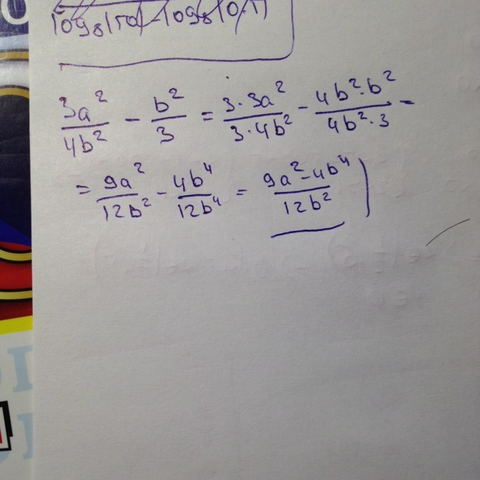 3a²/4b² − b²/3 = 3·3a²/3·4b² − 4b²·b²/4b²·3 =
= 9a²/12b² − 4b⁴/12b⁴ = 9a²−4b⁴/12b²